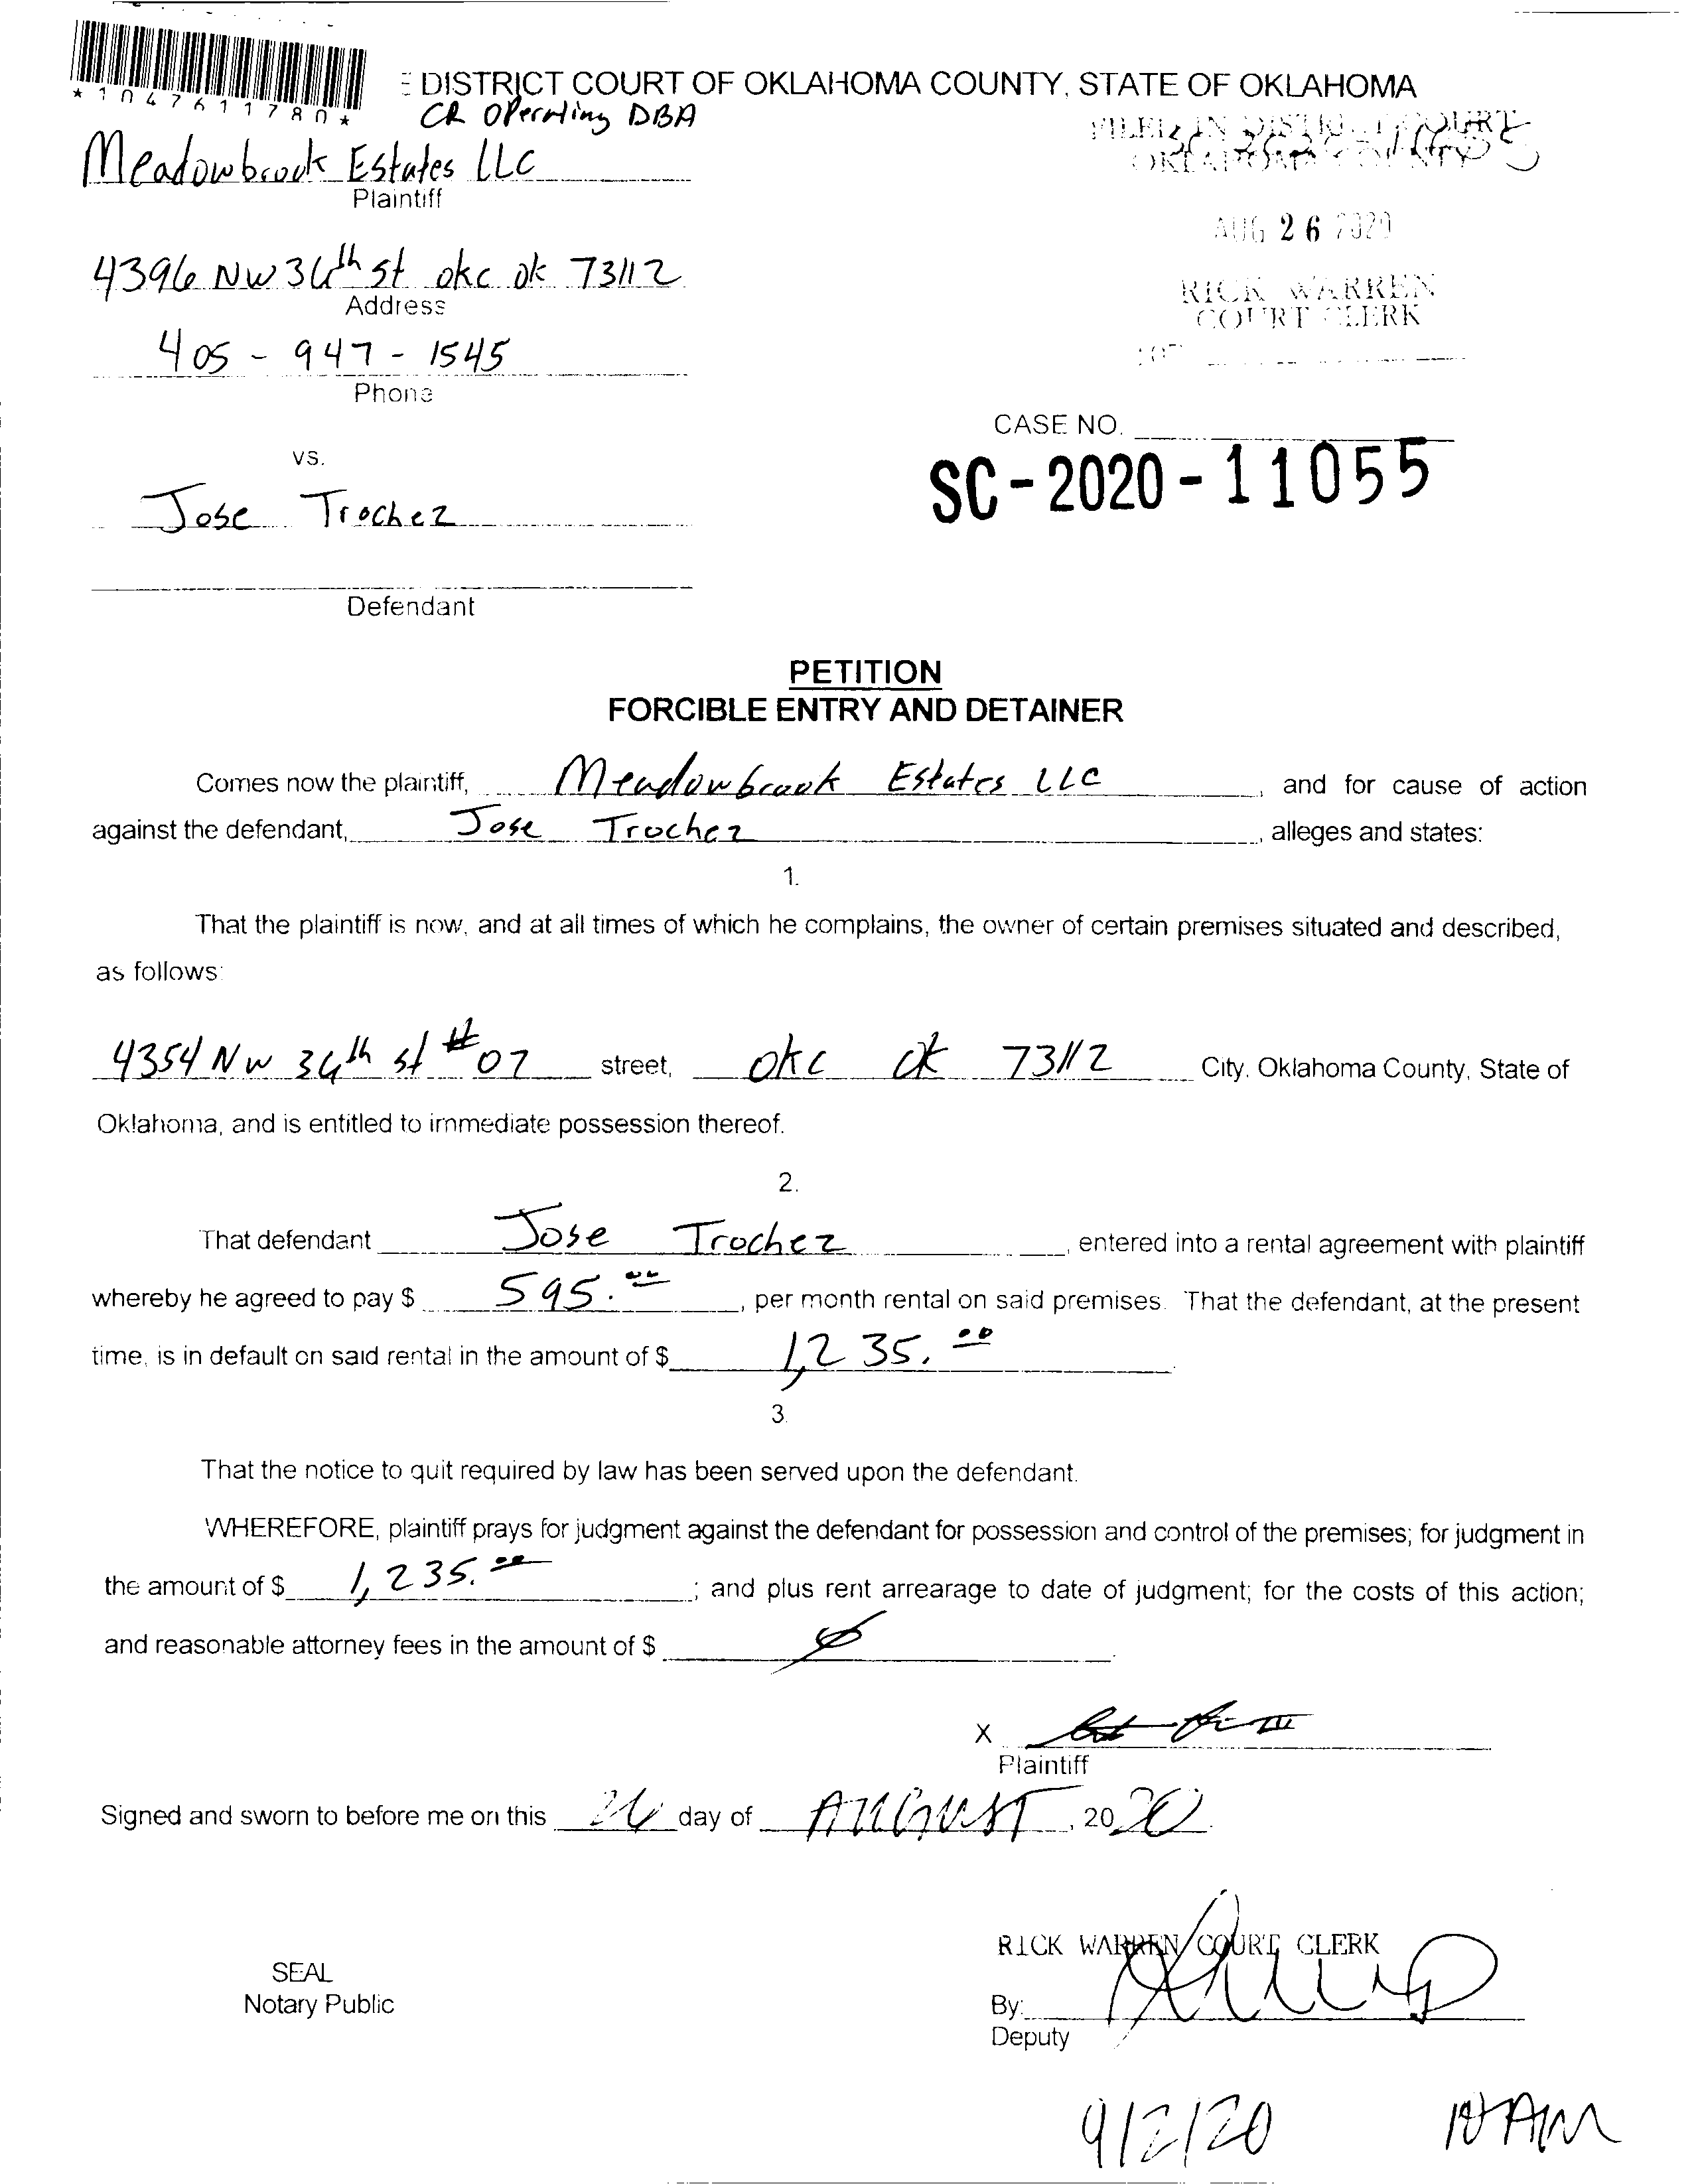 *1047611780*
DISTRICT COURT OF OKLAHOMA COUNTY, STATE OF OKLAHOMA
CR Operating DBA
FILED IN DISTRICT COURT
OKLAHOMA COUNTY
Meadowbrook Estates LLC
Plaintiff
AUG 26 2020
4396 NW 36th st okc ok 73112
Address
RICK WARREN
COURT CLERK
405-947-1545
Phone
CASE NO.
SC-2020-11055
vs.
Jose Trochez
Defendant
PETITION
FORCIBLE ENTRY AND DETAINER
Comes now the plaintiff, Meadowbrook Estates LLC, and for cause of action
against the defendant, Jose Trochez, alleges and states:
1.
That the plaintiff is now, and at all times of which he complains, the owner of certain premises situated and described,
as follows:
4354 NW 36th st #07 street, okc ok 73112 City, Oklahoma County, State of
Oklahoma, and is entitled to immediate possession thereof.
2.
That defendant Jose Trochez, entered into a rental agreement with plaintiff
whereby he agreed to pay $ 595.00, per month rental on said premises. That the defendant, at the present
time, is in default on said rental in the amount of $ 1,235.00
3.
That the notice to quit required by law has been served upon the defendant.
WHEREFORE, plaintiff prays for judgment against the defendant for possession and control of the premises; for judgment in
the amount of $ 1,235.00; and plus rent arrearage to date of judgment; for the costs of this action;
and reasonable attorney fees in the amount of $
X
Plaintiff
Signed and sworn to before me on this 26 day of AUGUST, 2020.
RICK WARREN COURT CLERK
SEAL
Notary Public
By:
Deputy
9/2/20 10 AM